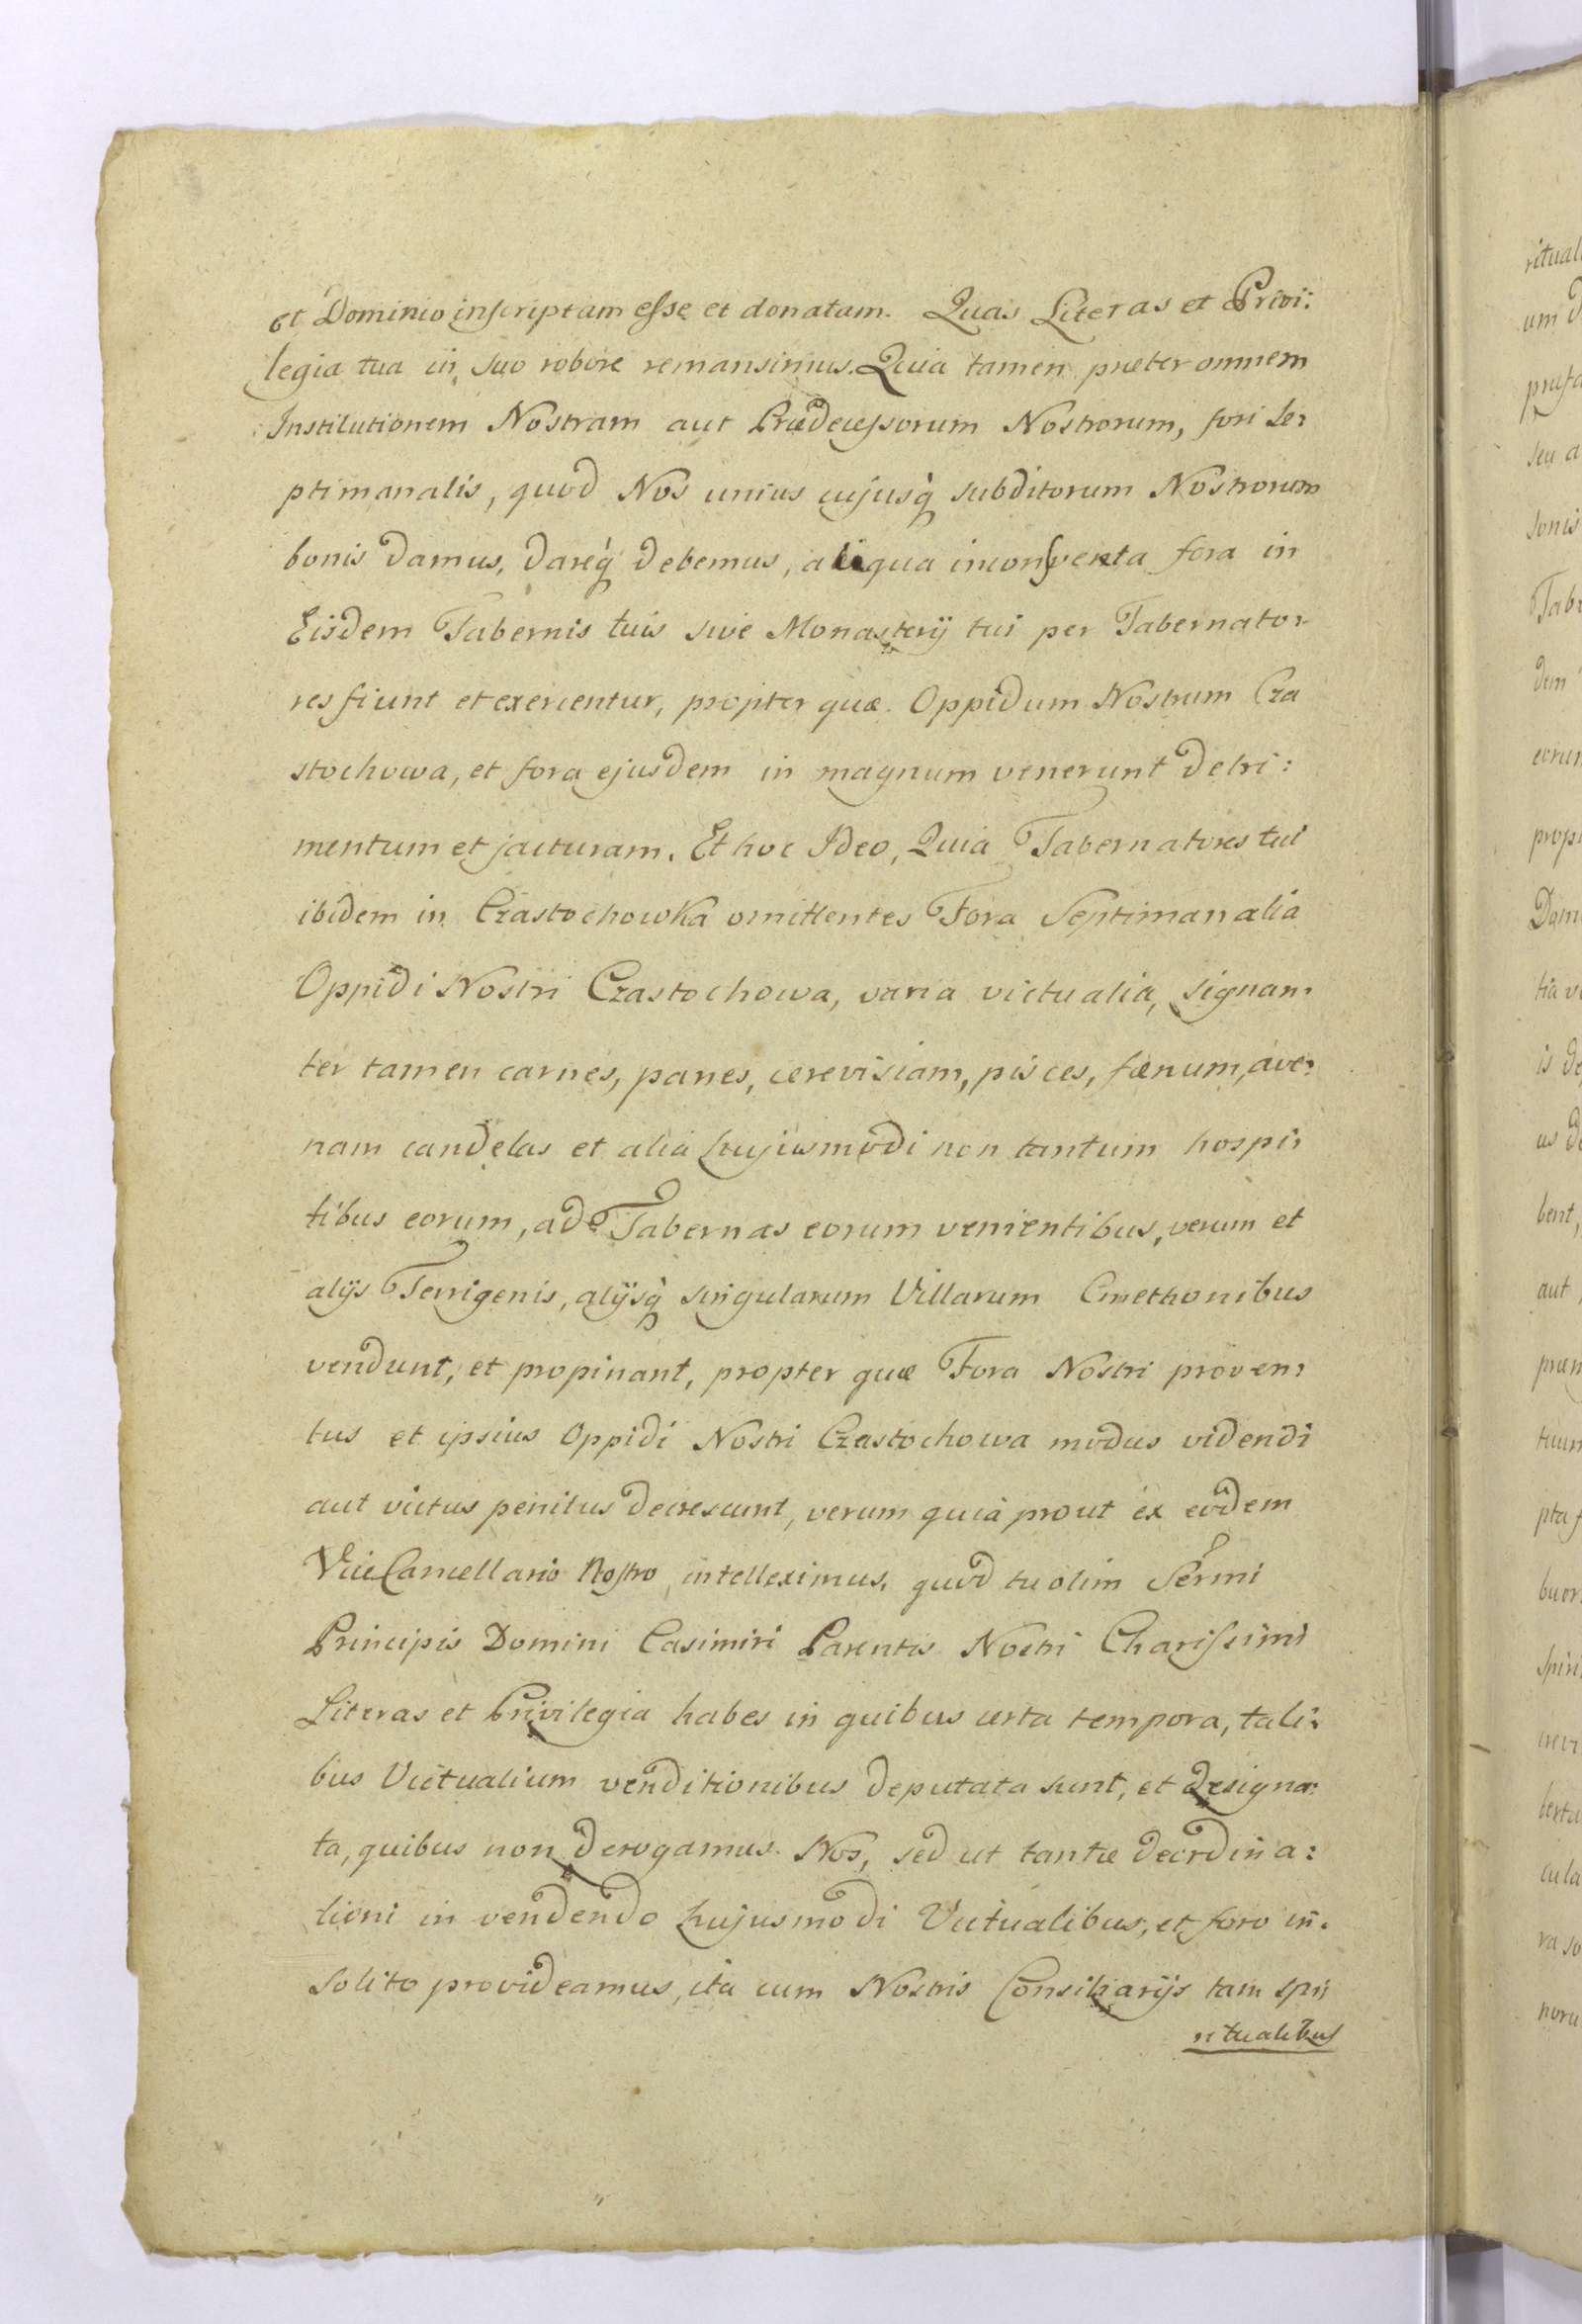 et Dominio inscriptam esse et donatam. Quas Literas et Privi:
legia tua in suo robore remansimus. Quia tamen præter omnem
Institutionem Nostram aut Prædecessorum Nostrorum, fori Se:
ptimanalis, quod Nos unius cujusq̀ subditorum Nostrorum
bonis damus, dareq̀ debemus, aliqua inconsventa fora in
Eisdem Tabernis tuis sive Monasterij tui per Tabernato:
res fiunt et exercentur, propter quæ Oppidum Nostrum Cza
stochowa, et fora ejusdem in magnum venerunt detri:
mentum et jacturam. Et hoc Ideo, Quia Tabernatores tui
ibidem in Czastochowka omittentes Fora Septimanalia
Oppidi Nostri Czastochowa, varia victualia, signan:
ter tamen carnes, panes, cerevisiam, pisces, fænum, ave:
nam candelas et alia hujusmodi non tantum hospi:
tibus eorum, ad Tabernas eorum venientibus, verum et
alijs Terrigenis, alijsq̀ singularum Villarum Cmethonibus
vendunt, et propinant, propter quæ Fora Nostri proven:
tus et ipsius Oppidi Nostri Czastochowa modus videndi
aut victus penitus decrescunt, verum quia prout ex eodem
ViceCancellario Nostro intelleximus, quod tu olim Sermi
Principis Domini Casimiri Parentis Nostri Charissimi
Literas et Privilegia habes in quibus certa tempora, tali:
bus Victualium venditionibus deputata sunt, et designa:
ta, quibus non derogamus Nos, sed ut tantæ deordina:
tioni in vendendo hujusmodi Victualibus, et foro in:
solito provideamus, ita cum Nostris Consiliarijs tam spi:
ritualibus